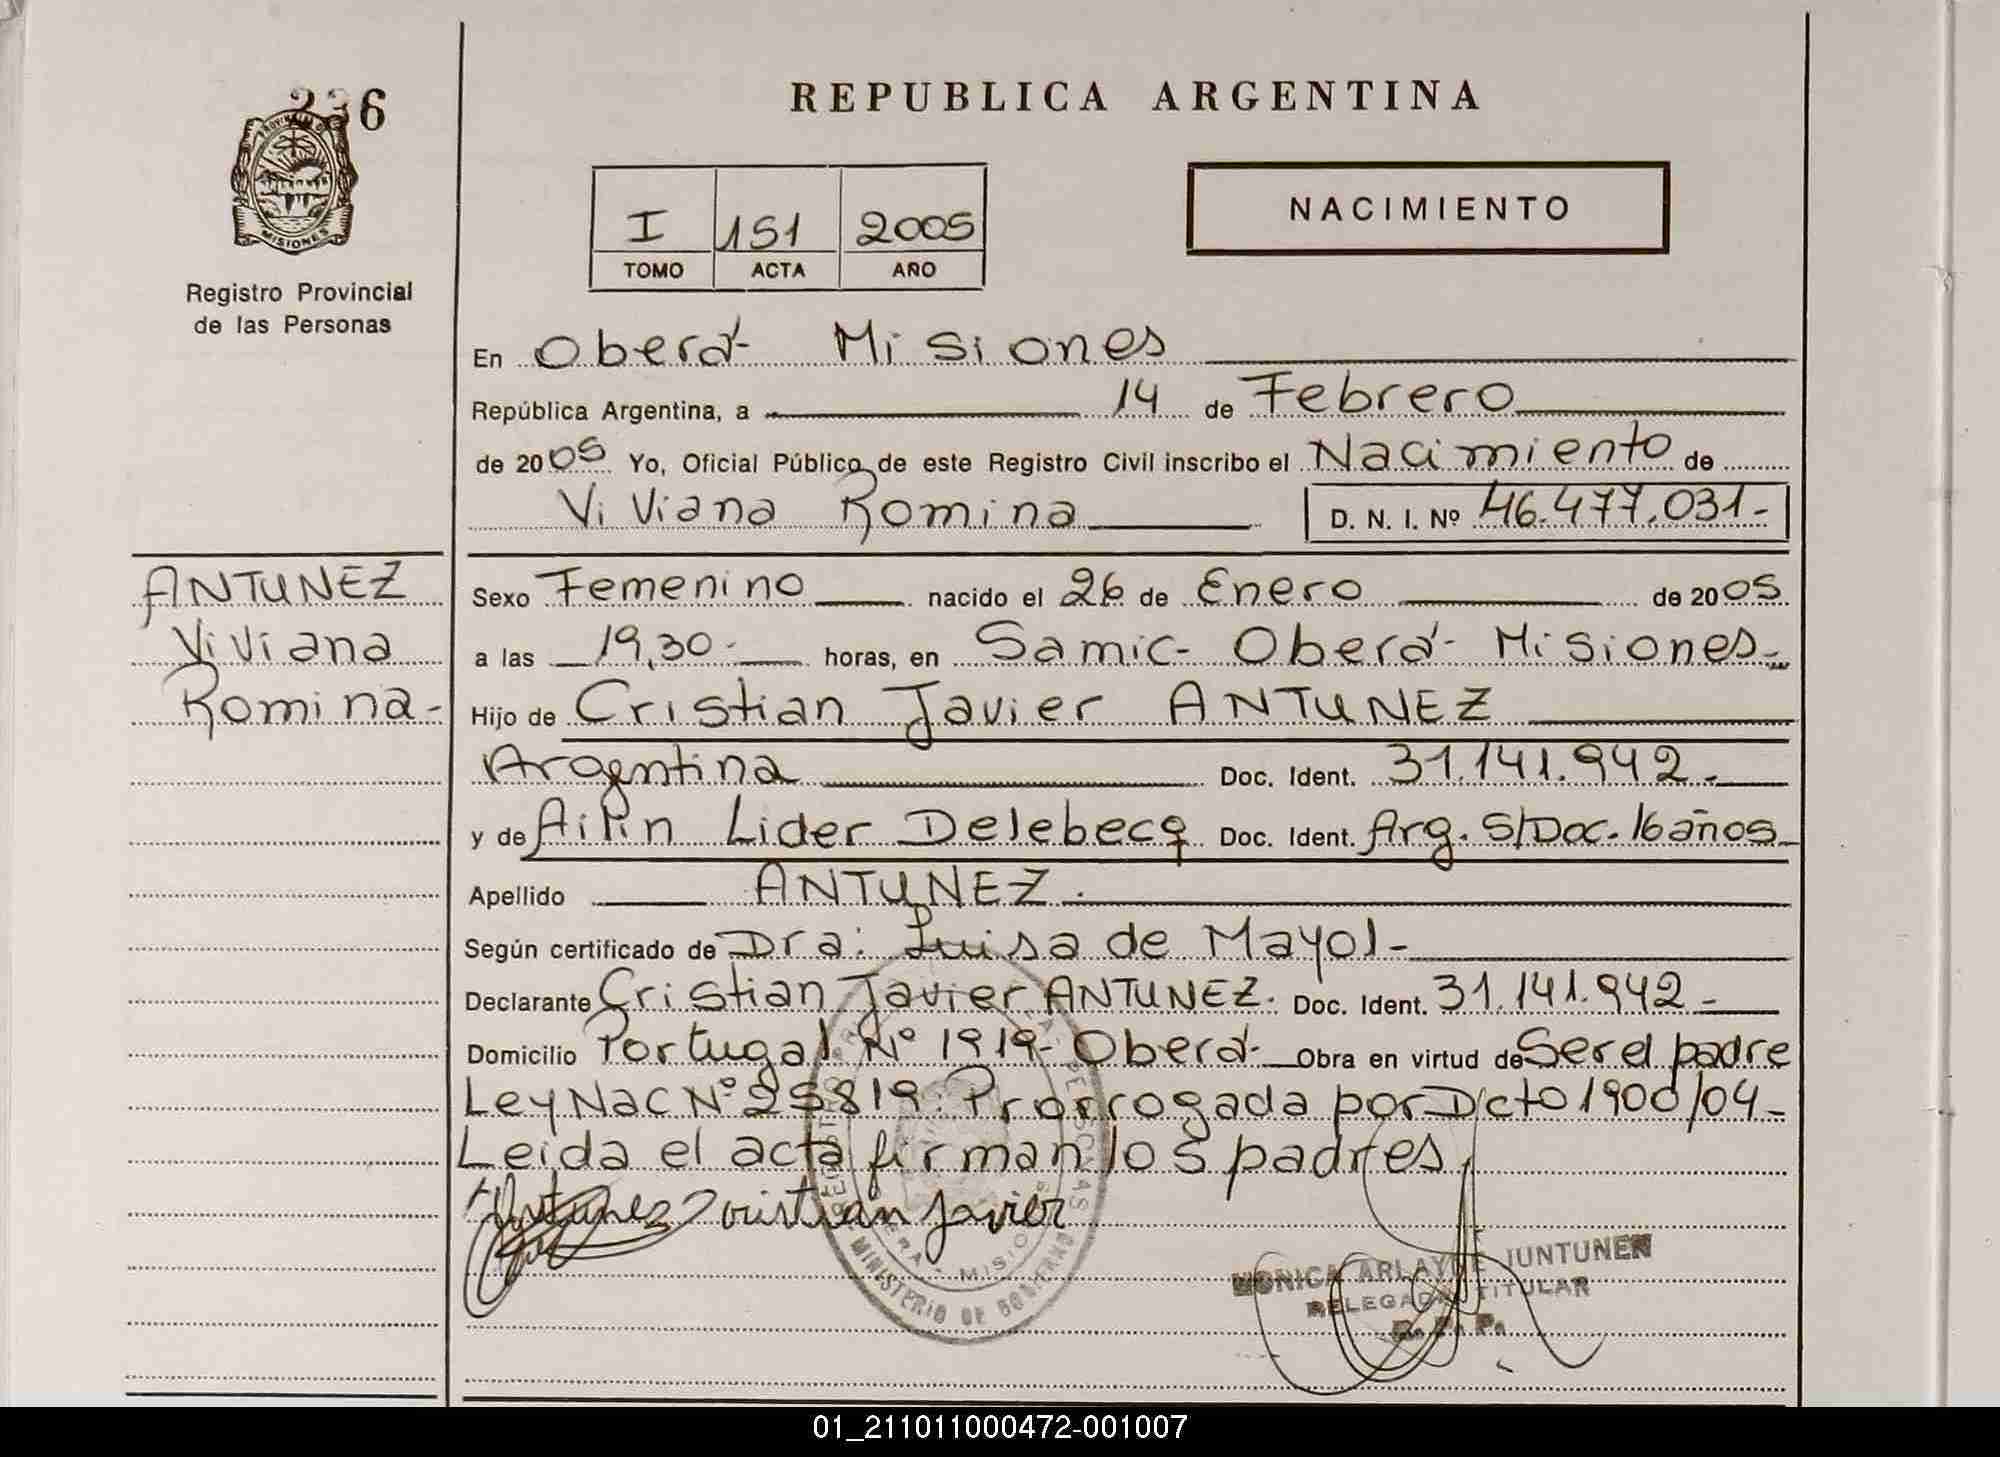 236
REPUBLICA ARGENTINA
PROVINCIA DE
MISIONES
Registro Provincial
de las Personas
I 151 2005
TOMO ACTA AÑO
NACIMIENTO
En Oberá- Misiones
República Argentina, a 14 de Febrero
de 2005 Yo, Oficial Público de este Registro Civil inscribo el Nacimiento de
Viviana Romina D. N. I. Nº 46.477.031-
ANTUNEZ
Viviana
Romina-
Sexo Femenino nacido el 26 de Enero de 2005
a las 19,30- horas, en Samic- Oberá- Misiones-
Hijo de Cristian Javier ANTUNEZ
Argentina Doc. Ident. 31.141.942-
y de Ailin Lider Delebecq Doc. Ident. Arg. S/Doc. 16 años-
Apellido ANTUNEZ.
Según certificado de Dra: Luisa de Mayol-
Declarante Cristian Javier ANTUNEZ. Doc. Ident. 31.141.942-
Domicilio Portugal Nº 1919- Oberá- Obra en virtud de Ser el padre
Ley Nac Nº 25819. Prorrogada por Dcto 1900/04-
Leida el acta firman los padres
Antunez Cristian Javier
MINISTERIO DE GOBIERNO
MONICA ARLAYNE JUNTUNEN
DELEGADA TITULAR
R. P. P.
01_211011000472-001007